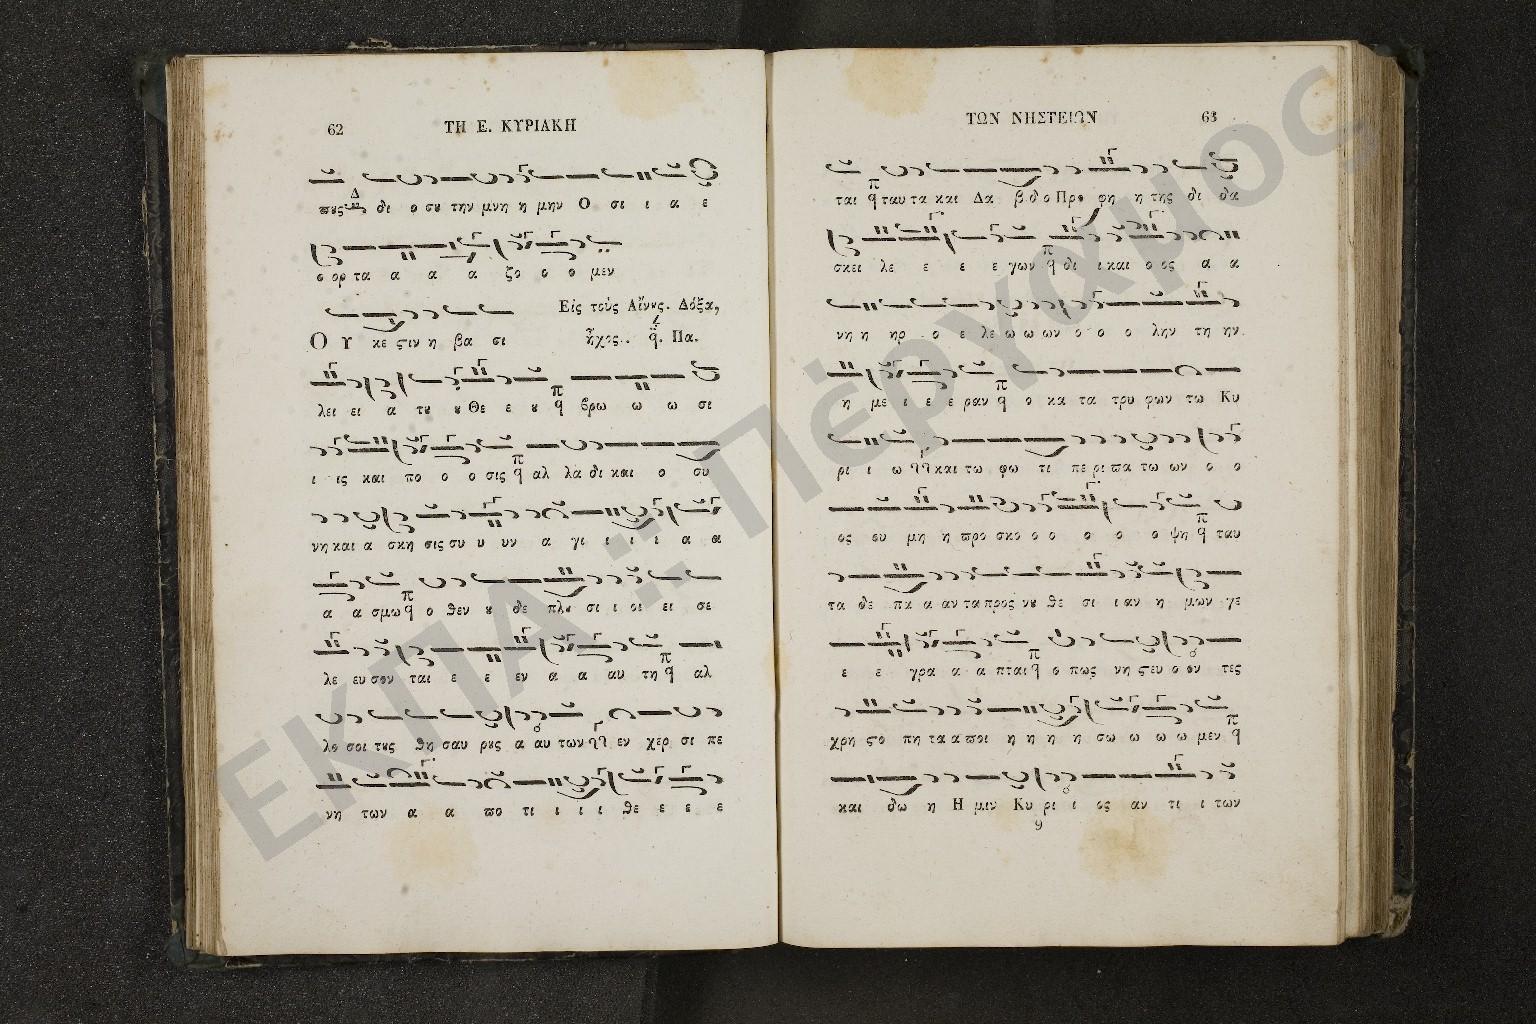 62 ΤΗ Ε. ΚΥΡΙΑΚΗ
πȣς δι ο σȣ την μνη η μην Ο σι ι α ε
ο ορ τα α α α ζο ο ο μεν
Εἰς τοὺς Αἴνȣς. Δόξα,
Ο Υ κε ϛιν η βα σι ἦχος. Πα.
λει ει α τȣ ȣ Θε ε ȣ βρω ω ω σι
ι ις και πο ο ο σις αλ λα δι και ο συ
νη και α σκη σις συ υ υν α γι ι ι ι α α
α α σμω ο θεν ȣ δε πλȣ σι ι οι ει σε
λε ευ σον ται ε ε εν α α αυ τη αλ
λο σοι τȣς θη σαυ ρȣς α αυ των εν χερ σι πε
νη των α α πο τι ι ι ι θε ε ε ε
ΤΩΝ ΝΗΣΤΕΙΩΝ 63
ται ταυ τα και Δα βιδ ο Προ φη η της δι δα
σκει λε ε ε ε γων δι ι και ο ος α α
νη η ηρ ο ε λε ω ω ων ο ο ο λην τη ην
η με ι ε ε ραν ο κα τα τρυ φων τω Κυ
ρι ι ω και τω φω τι πε ρι πα τω ων ο ο
ος ου μη η προ σκο ο ο ο ο ο ψη ταυ
τα δε πα α αν τα προς νȣ θε σι ι αν η μων γε
ε ε γρα α α πται ο πως νη ϛευ ο ον τες
χρη ϛο τη τα α ποι η η η η σω ω ω ω μεν
και δω η Η μιν Κυ ρι ι ος αν τι ι των
9
ΕΚΠΑ :: Πέργαμος